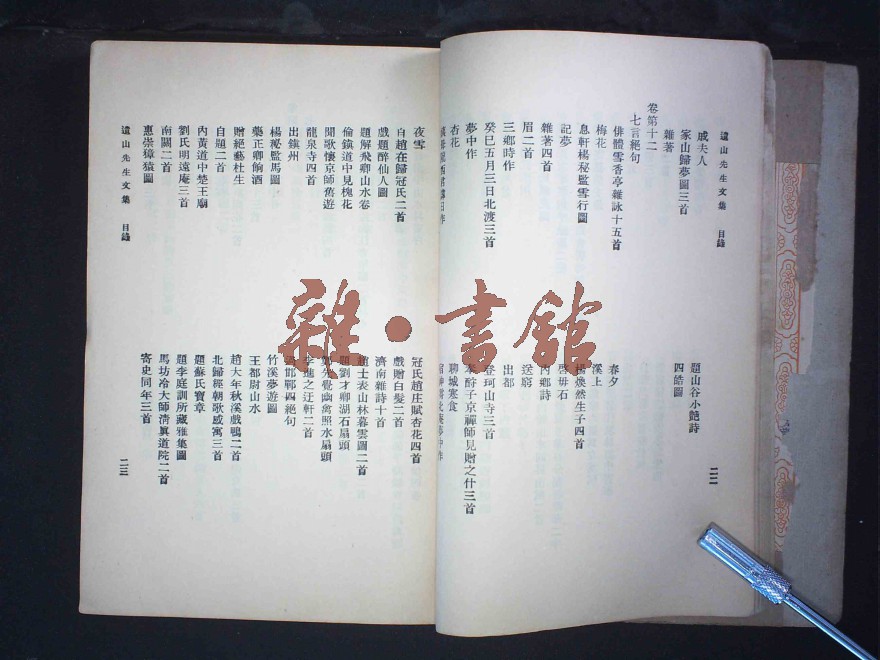 遺山先生文集 目錄
二二
戚夫人
題山谷小艶詩
家山歸夢圖三首
四皓圖
雜著
卷第十二
七言絕句
俳體雪香亭雜詠十五首
春夕
梅花
溪上
息軒楊秘監雪行圖
楊煥然生子四首
記夢
啓母石
雜著四首
內鄉詩
眉二首
送窮
三鄉時作
出都
癸巳五月三日北渡三首
登珂山寺三首
夢中作
子京禪師見贈之什三首
杏花
聊城寒食
夜雪
冠氏趙庄賦杏花四首
自趙在歸冠氏二首
戲贈白髮二首
戲題醉仙人圖
濟南雜詩十首
題解飛卿山水卷
趙士表山林暮雲圖二首
偷鎮道中見槐花
題劉才卿湖石扇頭
聞歌懷京師舊遊
先覺幽禽照水扇頭
龍泉寺四首
李進之迂軒二首
出鎮州
邯鄲四絕句
楊秘監馬圖
竹溪夢遊圖
藥正卿餉酒
王都尉山水
贈絕藝杜生
趙大年秋溪戲鴨二首
自題二首
北歸經朝歌感寓三首
內黃道中楚王廟
題蘇氏寶章
劉氏明遠庵三首
題李庭訓所藏雅集圖
南關二首
馬坊冷大師清眞道院二首
惠崇獐猿圖
寄史同年三首
遺山先生文集 目錄
二三
雜·書館